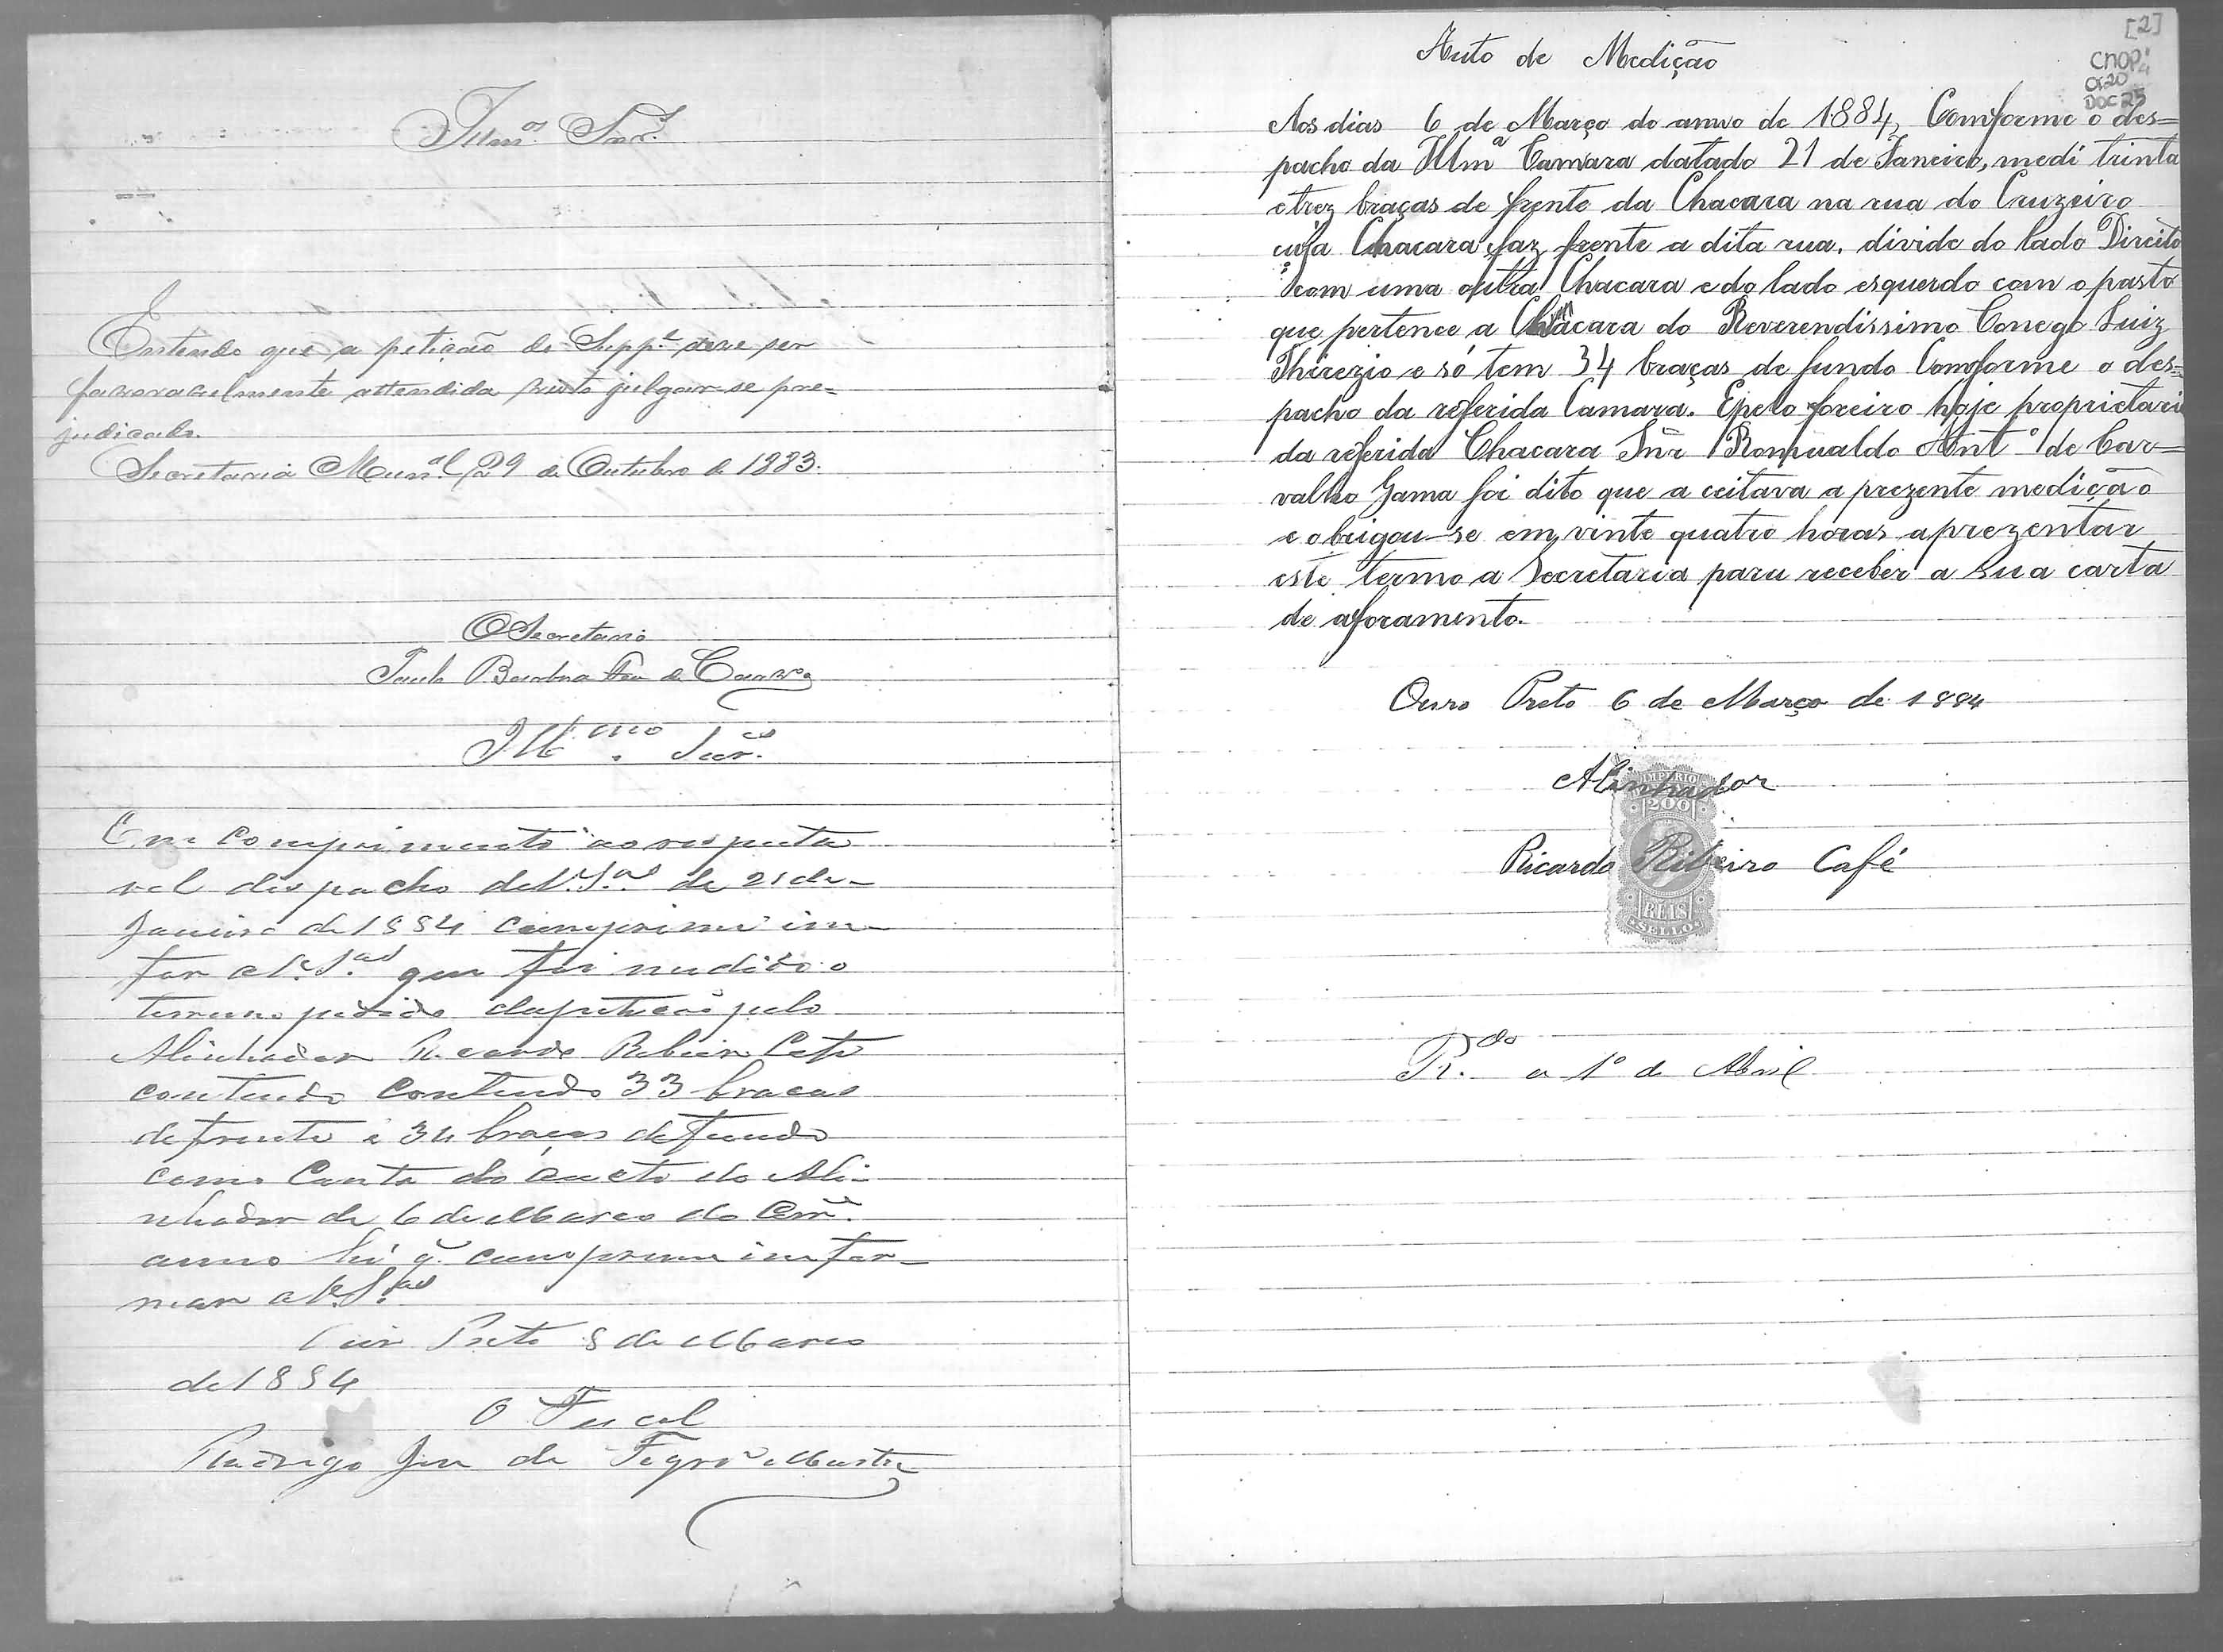 Illmos Snrs.
Entendo que a petição do Suppe deve ser
favoravelmente attendida visto julgar-se pre=
judicada.
Secretaria Munal 29 de Outubro de 1883.
O Secretario
Paulo de
Illmo. Snr.es
Em comprimento ao respeita
vel despacho de V.S.as de 21 de
Janeiro de 1884 comprime im-
for a V.S.as que foi medido o
terreno pedido da petição pelo
Alinhador Ricardo Ribeiro Café
contendo contendo 33 bracas
de frente e 34 braças de fundo
como Consta do aucto do Ali-
nhador de 6 de Março do Corr.
anno hé q. comprime infor-
mar a V.S.as
Ouro Preto 8 de Março
de 1884
O Fiscal
Rodrigo José de Figro
[2]
CNOP:
CX20
DOC25
Auto de Medição
Aos dias 6 de Março do anno de 1884, Comforme o des=
pacho da Illma Camara datado 21 de Janeiro, medi trinta
e trez braças de frente da Chacara na rua do Cruzeiro
cuja Chacara faz frente a dita rua, divide do lado Direito
com uma outra Chacara e do lado esquerdo com o pasto
que pertence a Chacara do Reverendissimo Conego Luiz
Therezio e só tem 34 braças de fundo Comforme o des=
pacho da referida Camara. E pelo foreiro hoje proprietario
da referida Chacara Snr Romualdo Anto de Car=
valho Gama foi dito que a ceitava a prezente medição
e obrigou-se em vinte quatro horas aprezentar
este termo a Secretaria para receber a sua carta
de aforamento.
Ouro Preto 6 de Março de 1884
Alinhador
IMPERIO
200
Ricardo Ribeiro Café
REIS
SELLO
R.do a 1º de Abril